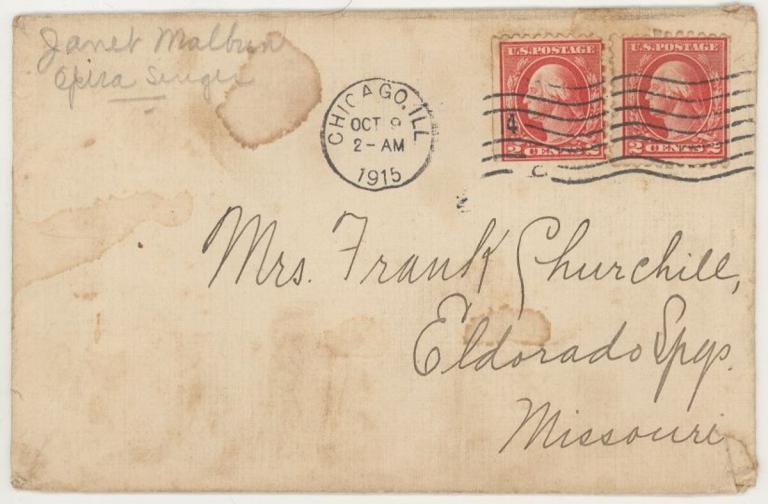 Janet Malbun
Opera Singer
CHICAGO, ILL.
OCT 9
2-AM
1915
U.S. POSTAGE
2 CENTS 2
U.S. POSTAGE
2 CENTS 2
4
Mrs. Frank Churchill,
Eldorado Spgs.
Missouri